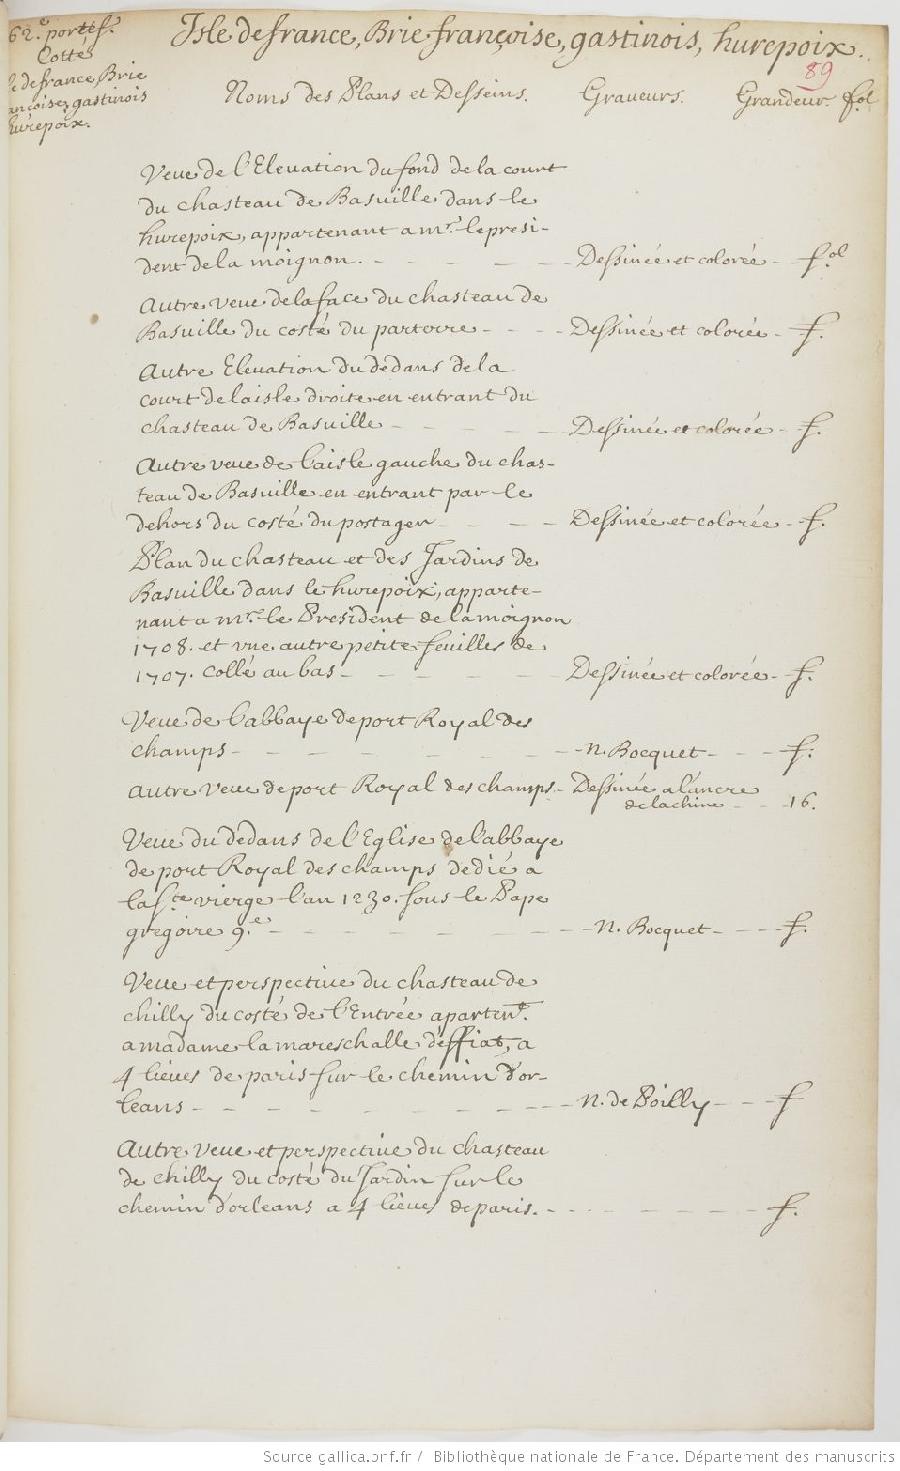 62.e portef.
Cotté
de france, Brie
ançoise, gastinois
hurepoix.
Isle de france, Brie françoise, gastinois, hurepoix..
89
Noms des Plans et Desseins. Graveurs. Grandeur. fol
Veue de l'Elevation du fond de la court
du chasteau de Basville dans le
hurepoix, appartenant a mr. le presi-
dent de la moignon. - - - - - - Dessinée et colorée - f.ol
Autre veue de la face du chasteau de
Basville du costé du parterre - - - - Dessinée et colorée - f.
Autre Elevation du dedans de la
court de laisle droite en entrant du
chasteau de Basville - - - - - Dessinée et colorée - f.
Autre veue de l'aisle gauche du chas-
teau de Basville en entrant par le
dehors du costé du postager - - - - Dessinée et colorée - f.
Plan du chasteau et des Jardins de
Basville dans le hurepoix, apparte-
nant a mr. le President de la moignon
1708. et vne autre petite feuilles de
1707. collé au bas - - - - - - Dessinée et colorée - f.
Veue de l'abbaye de port Royal des
champs - - - - - - - - n. Bocquet - - - f.
Autre Veue de port Royal des champs - Dessinée a l'ancre
de la chine - - 16.
Veue du dedans de l'Eglise de l'abbaye
de port Royal des champs dedié a
la ste vierge l'an 1230. sous le Pape
gregoire 9.e - - - - - - - - n. Bocquet - - - f.
Veue et perspective du chasteau de
chilly du costé de l'Entrée apartent.
a madame la mareschalle deffiat, a
4 lieues de paris sur le chemin d'or-
leans - - - - - - - - - n. de Poilly - - - f
Autre veue et perspective du chasteau
de chilly du costé du Jardin sur le
chemin d'orleans a 4 lieues de paris. - - - - - - - f.
Source gallica.bnf.fr / Bibliothèque nationale de France. Département des manuscrits